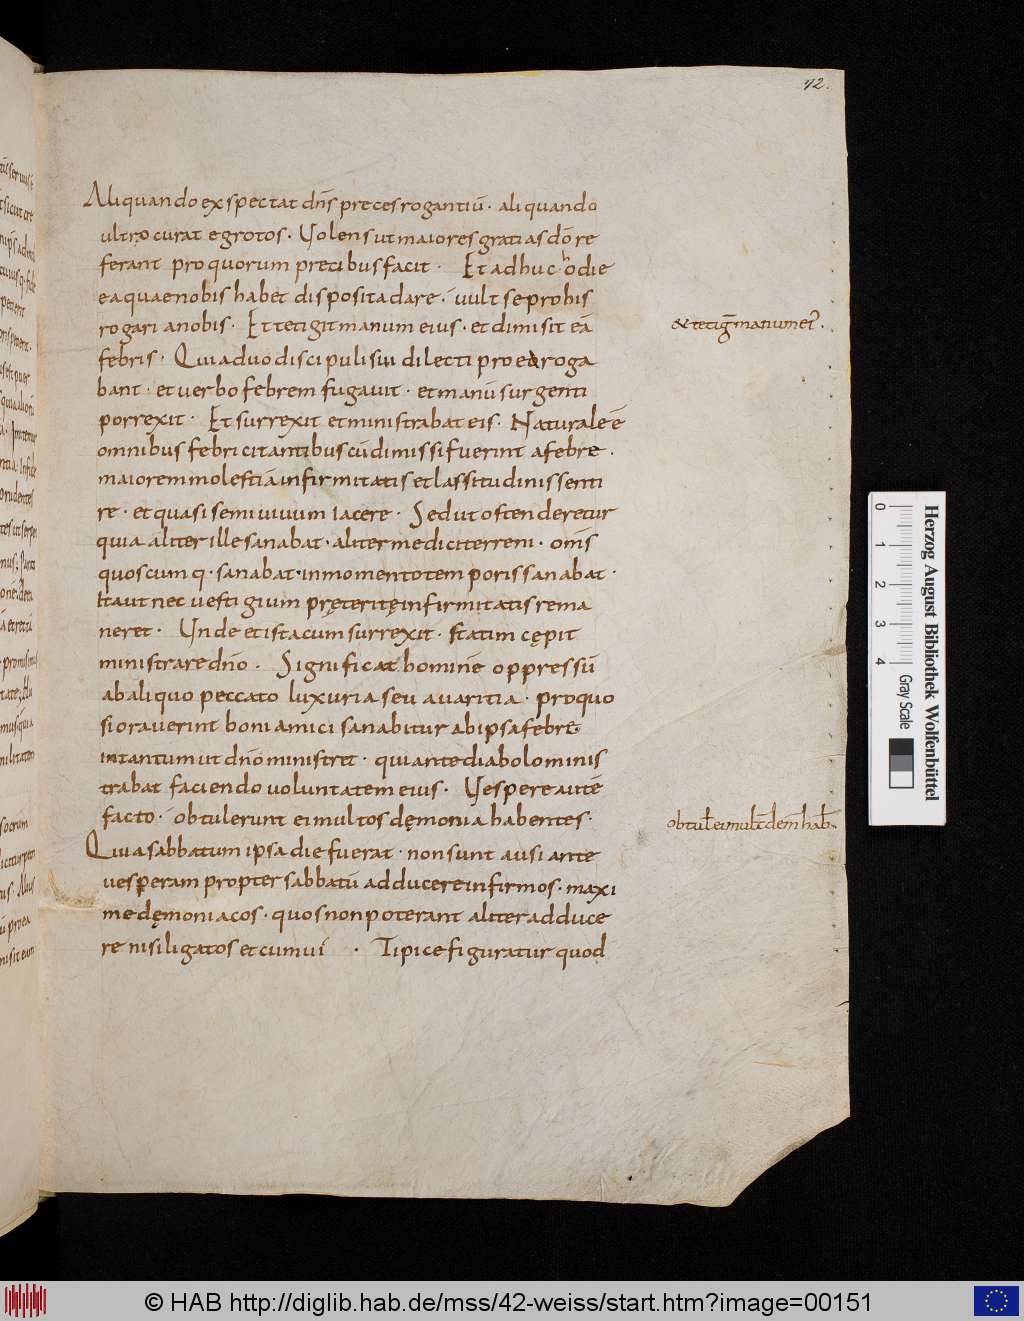 72.
Aliquando exspectat dn̄s preces rogantiū. aliquando
ultro curat egrotos. Volens ut maiores gratias dō re
ferant pro quorum precibus facit. Et adhuc hodie
ea quae nobis habet disposita dare. vult se pro his
rogari a nobis. Et tetigit manum eius. et dimisit eā
febris. Quia duo discipuli sui dilecti pro ea roga
bant. et verbo febrem fugavit. et manū surgenti
porrexit. Et surrexit et ministrabat eis. Naturale ē
omnibus febricitantibus cū dimissi fuerint a febre.
maiorem molestiā infirmitatis et lassitudinis senti
re. et quasi semivivum iacere. Sed ut ostenderetur
quia aliter ille sanabat. aliter medici terreni. om̄s
quoscumq. sanabat. in momento temporis sanabat.
Ita ut nec vestigium pręteritę infirmitatis rema
neret. Unde et ista cum surrexit. statim cępit
ministrare dn̄o. Significat hominē oppressū
ab aliquo peccato luxuria seu avaritia. pro quo
si oraverint boni amici sanabitur ab ipsa febrē
intantum ut dn̄o ministret. qui ante diabolo minis
trabat faciendo voluntatem eius. Vespere autē
facto. obtulerunt ei multos dęmonia habentes.
Quia sabbatum ipsa die fuerat. non sunt ausi ante
vesperam propter sabbatū adducere infirmos. maxi
me dęmoniacos. quos non poterant aliter adduce
re nisi ligatos et cum vi. Tipice figuratur quod
& tetig̅ manum ei'.
obtul̅ ei mult̅ dem̅ hab̅.
Herzog August Bibliothek Wolfenbüttel
0 1 2 3 4 Gray Scale
© HAB http://diglib.hab.de/mss/42-weiss/start.htm?image=00151